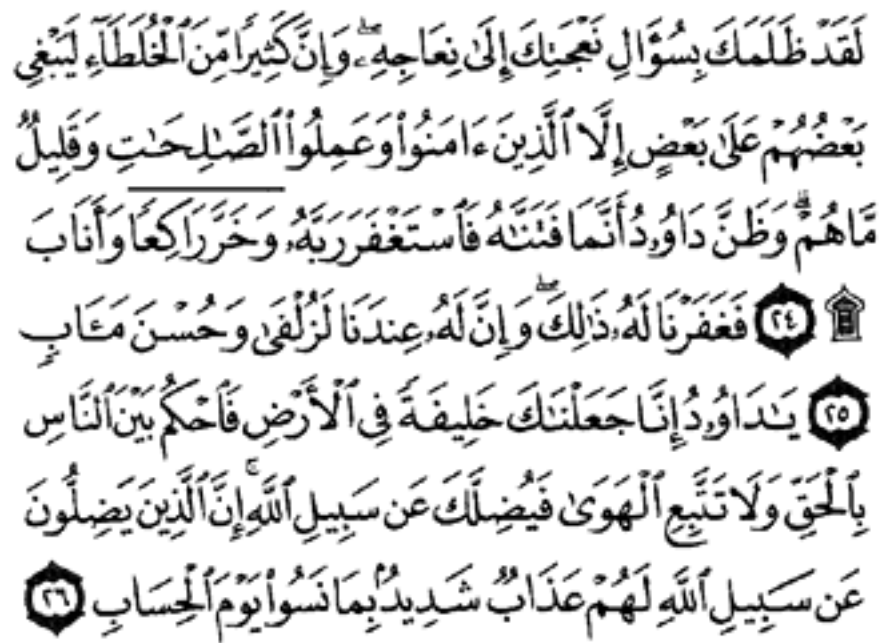 لَقَدْ ظَلَمَكَ بِسُؤَالِ نَعْجَتِكَ إِلَىٰ نِعَاجِهِۦۖ وَإِنَّ كَثِيرًا مِّنَ ٱلْخُلَطَآءِ لَيَبْغِى
بَعْضُهُمْ عَلَىٰ بَعْضٍ إِلَّا ٱلَّذِينَ ءَامَنُوا۟ وَعَمِلُوا۟ ٱلصَّـٰلِحَـٰتِ وَقَلِيلٌ
مَّا هُمْۗ وَظَنَّ دَاوُۥدُ أَنَّمَا فَتَنَّـٰهُ فَٱسْتَغْفَرَ رَبَّهُۥ وَخَرَّ رَاكِعًا وَأَنَابَ
۩ ٢٤ فَغَفَرْنَا لَهُۥ ذَٰلِكَۖ وَإِنَّ لَهُۥ عِندَنَا لَزُلْفَىٰ وَحُسْنَ مَـَٔابٍ
٢٥ يَـٰدَاوُۥدُ إِنَّا جَعَلْنَـٰكَ خَلِيفَةً فِى ٱلْأَرْضِ فَٱحْكُم بَيْنَ ٱلنَّاسِ
بِٱلْحَقِّ وَلَا تَتَّبِعِ ٱلْهَوَىٰ فَيُضِلَّكَ عَن سَبِيلِ ٱللَّهِۚ إِنَّ ٱلَّذِينَ يَضِلُّونَ
عَن سَبِيلِ ٱللَّهِ لَهُمْ عَذَابٌ شَدِيدٌۢ بِمَا نَسُوا۟ يَوْمَ ٱلْحِسَابِ ٢٦